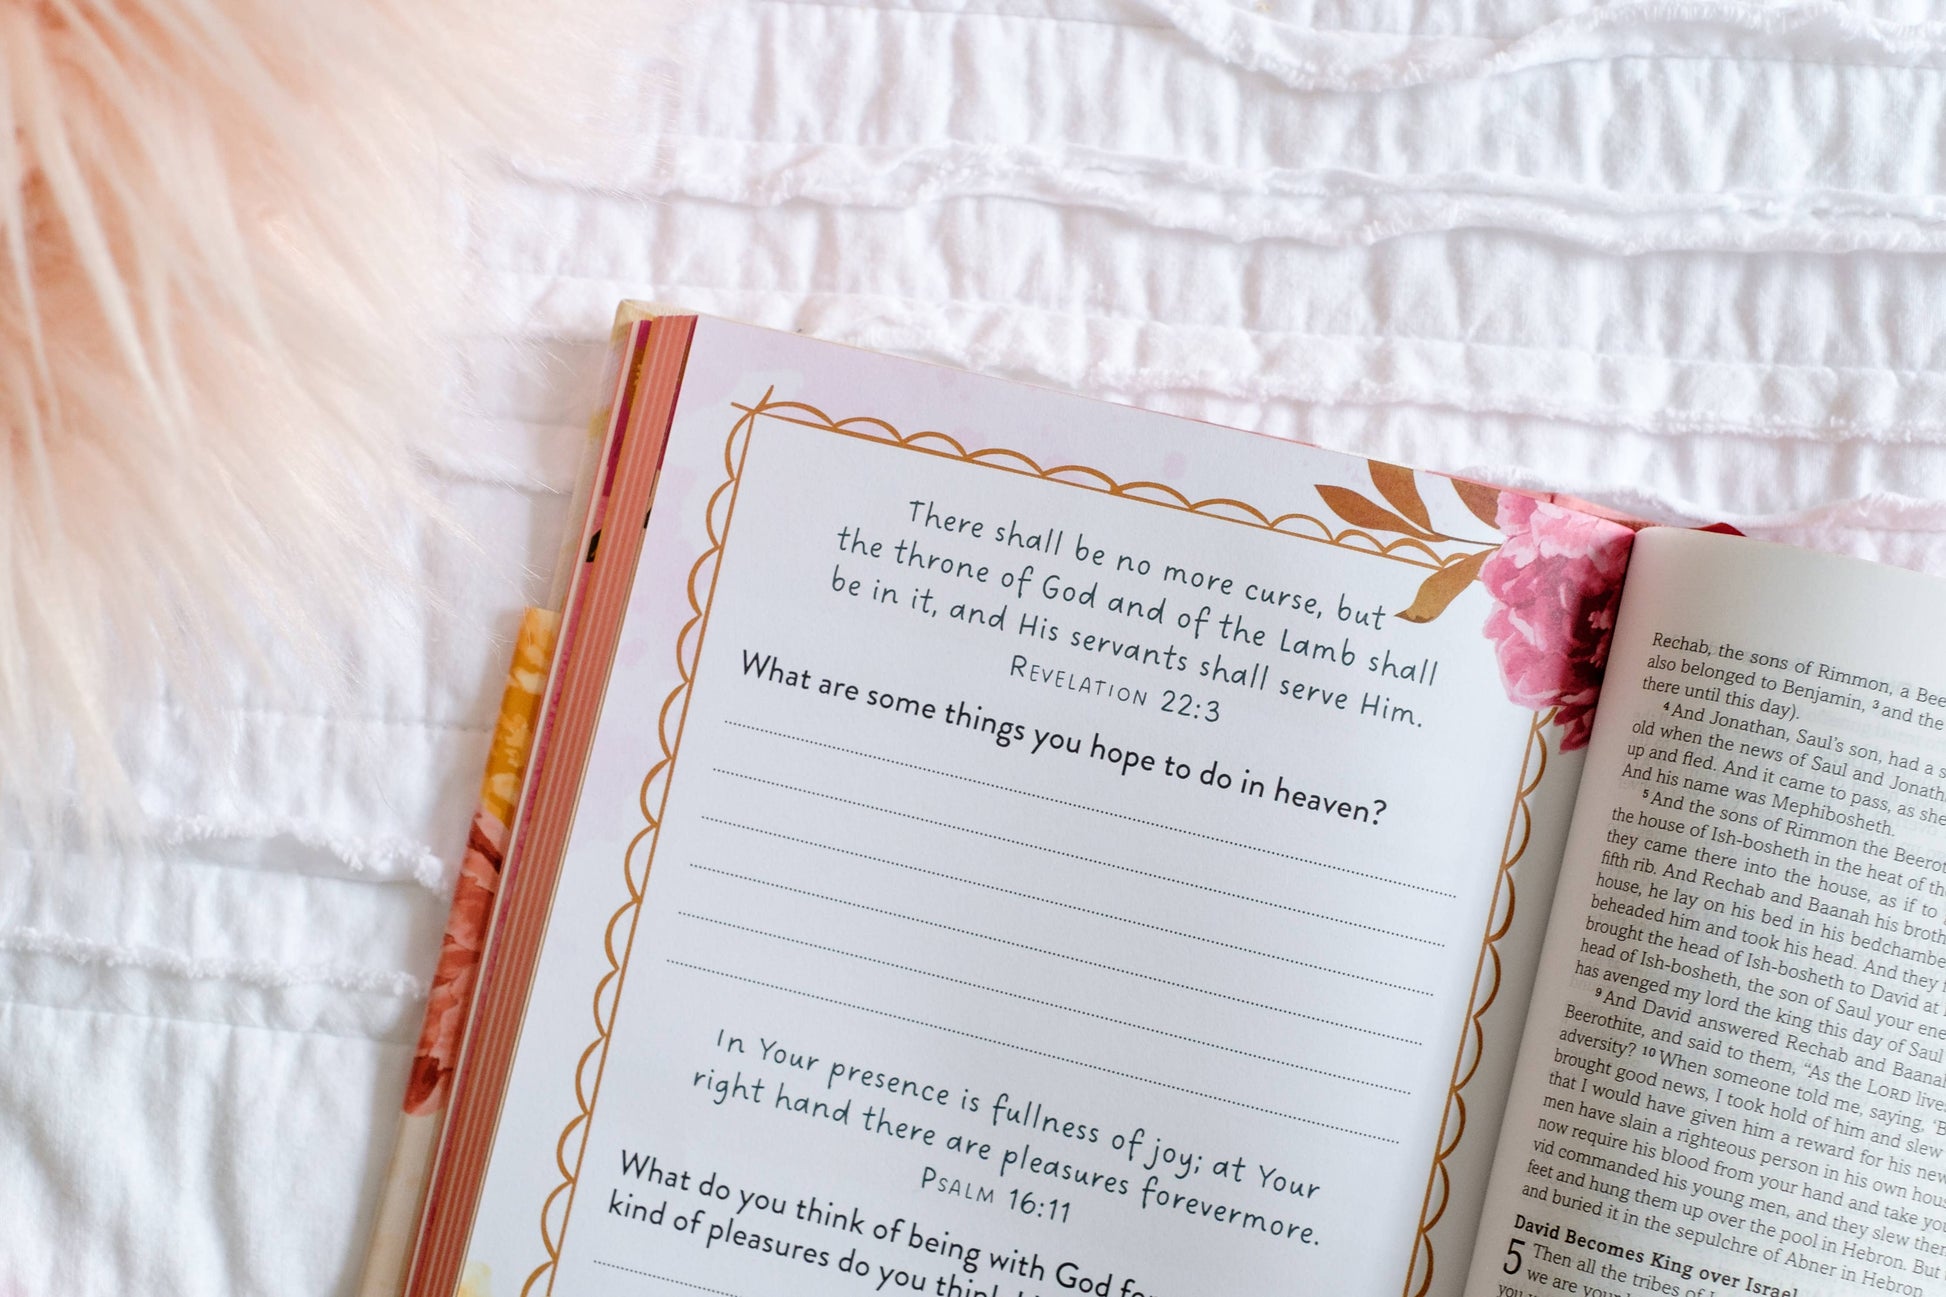 There shall be no more curse, but
the throne of God and of the Lamb shall
be in it, and His servants shall serve Him.
REVELATION 22:3
What are some things you hope to do in heaven?
In Your presence is fullness of joy; at Your
right hand there are pleasures forevermore.
PSALM 16:11
What do you think of being with God
kind of pleasures do you think
Rechab, the sons of Rimmon, a
also belonged to Benjamin, 3 and the
there until this day).
4 And Jonathan, Saul's son, had a
old when the news of Saul and
up and fled. And it came to pass, as she
And his name was Mephibosheth.
5 And the sons of Rimmon the
the house of Ish-bosheth in the heat of the
they came there into the house, as if to
fifth rib. And Rechab and Baanah his
house, he lay on his bed in his
beheaded him and took his head. And they
brought the head of Ish-bosheth to David at
head of Ish-bosheth, the son of Saul your
has avenged my lord the king this day of Saul
9 And David answered Rechab and
Beerothite, and said to them, "As the LORD
adversity? 10 When someone told me, saying,
brought good news, I took hold of him and slew
that I would have given him a reward for his
men have slain a righteous person in his own
now require his blood from your hand and take
vid commanded his young men, and they slew
feet and hung them up over the pool in Hebron. But
and buried it in the sepulchre of Abner in Hebron.
David Becomes King over Israel
5 Then all the tribes of
we are your